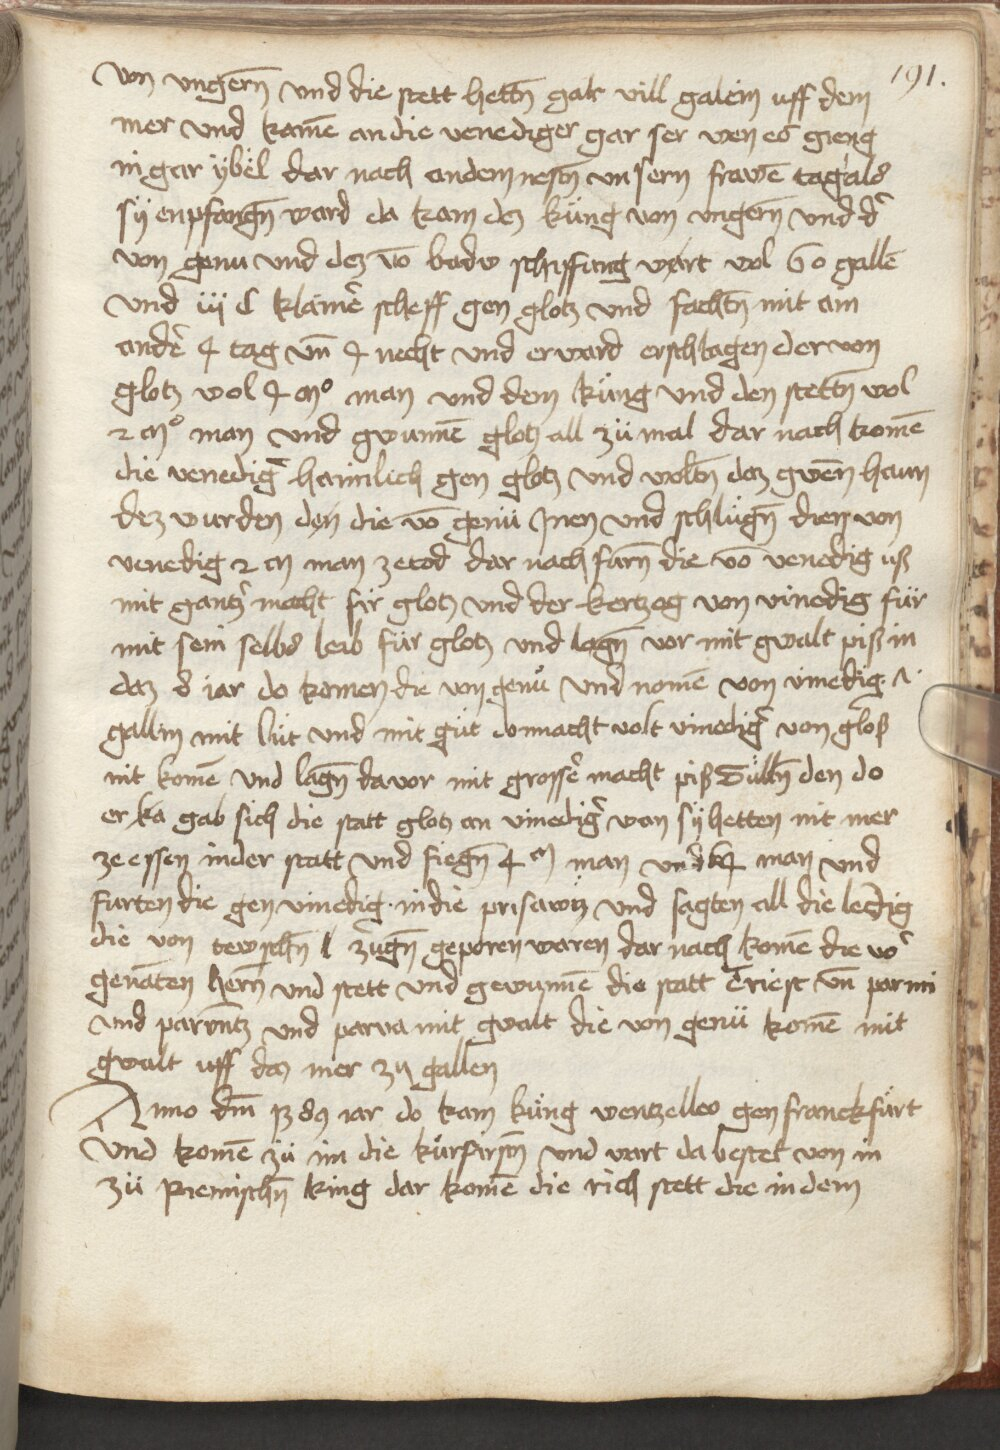 191.
von ungerñ und die stett hettñ gar vill galein uff dem
mer und komē an die venediger gar ser wen es gieng
in gar ÿbel dar nach an dem nestñ unsern frawē tag als
sÿ enpfangñ ward da kam dez küng von ungerñ und d'
von genu und dez vō badw schiffung wart wol 60 gallē
und iij c klainē scheff gen glotz und fachtñ mit am
andē 4 tag uñ 4 necht und er ward erschlagen der von
glotz wol 4 mͦ man und dem küng und den stettñ wol
2 mͦ man und gwunnē glotz all zü mal dar nach komē
die venedig' haimlich gen glotz und woltñ dez gwēn haun
dez wurden den die vō genü Inen und schlügñ dien von
venedig 2 m man ze tod dar nach farñ die vō venedig uß
mit gantz' macht fir glotz und der hertzog von vinedig für
mit sein selbs leib für glotz und lagñ vor mit gwalt piß in
daz 8 iar do komen die von genü und nomē von vinedig · 1 ·
gallin mit lüt und mit güt do macht volt vinedig' von gloß
nit komē und lagñ davor mit grossē macht piß den do
er gab sich die statt glotz an vinedig' wan sÿ hetten nit mer
ze essen in der statt und fiegñ 4 m man man und
furten die gen vinedig · in die prisawn und sagten all die ledig
die von tewschñ zugñ geporen waren dar nach komē die vo'
genāten herñ und stett und gewunnē die statt Triest uñ
und parentz und parva mit gwalt die von genü komē mit
gwalt uff daz mer zu gallen
Anno dm̄ iar do kam küng wentzelleo gen franckfürt
und komē zü im die kürfirstñ und wart da bestet von in
zü Remischñ king dar komē die rich stett die in dem